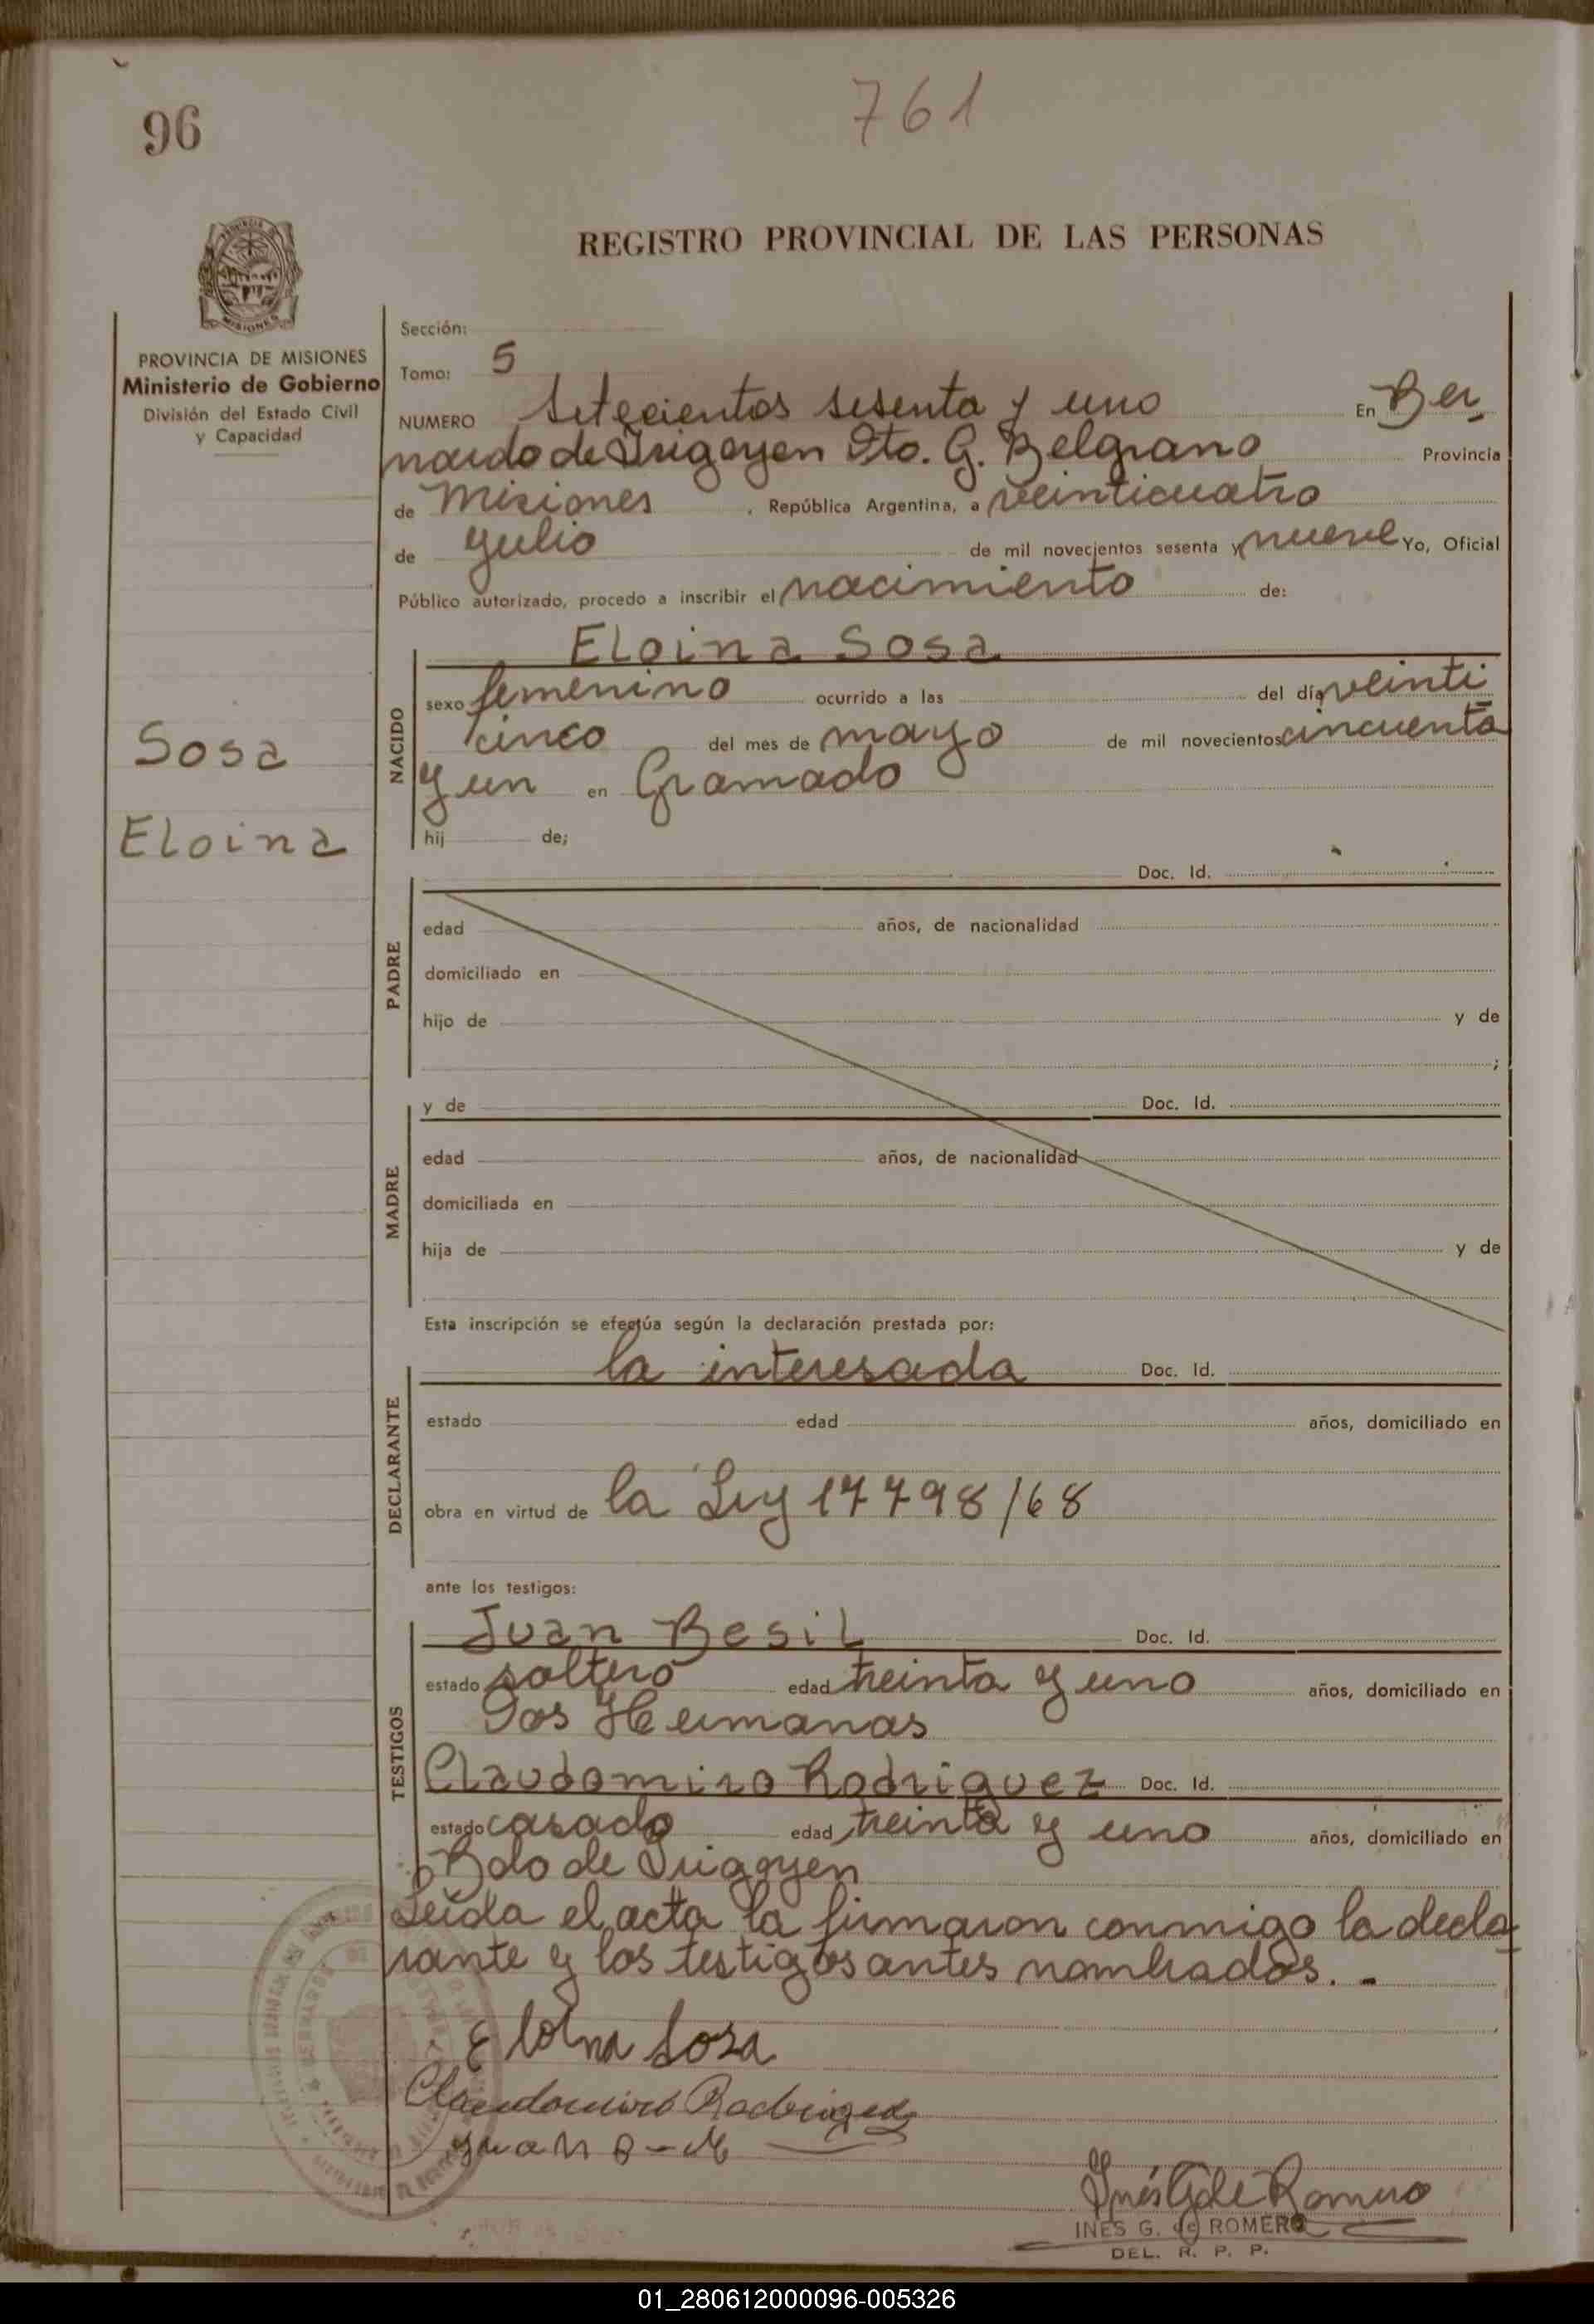 96
761
REGISTRO PROVINCIAL DE LAS PERSONAS
PROVINCIA DE MISIONES
Ministerio de Gobierno
División del Estado Civil
y Capacidad
Sosa
Eloina
Sección:
Tomo: 5
NUMERO Setecientos sesenta y uno En Ber
nardo de Irigoyen Dto. G. Belgrano Provincia
de Misiones, República Argentina, a veinticuatro
de Julio de mil novecientos sesenta y nueve Yo, Oficial
Público autorizado, procedo a inscribir el nacimiento de:
Eloina Sosa
NACIDO
sexo femenino ocurrido a las del día veinti
cinco del mes de mayo de mil novecientos cincuenta
y un en Gramado
hij de;
PADRE
Doc. Id.
edad años, de nacionalidad
domiciliado en
hijo de y de
;
MADRE
y de Doc. Id.
edad años, de nacionalidad
domiciliada en
hija de y de
Esta inscripción se efectúa según la declaración prestada por:
DECLARANTE
la interesada Doc. Id.
estado edad años, domiciliado en
obra en virtud de la Ley 17798/68
ante los testigos:
TESTIGOS
Juan Besil Doc. Id.
estado soltero edad treinta y uno años, domiciliado en
Dos Hermanas
Claudomiro Rodriguez Doc. Id.
estado casado edad treinta y uno años, domiciliado en
Bdo de Irigoyen
Leída el acta la firmaron conmigo la decla
rante y los testigos antes nombrados. -
Eloina Sosa
Claudomiro Rodriguez
Juan B-M
Inés G de Romero
INES G. de ROMERO
DEL. R. P. P.
01_280612000096-005326